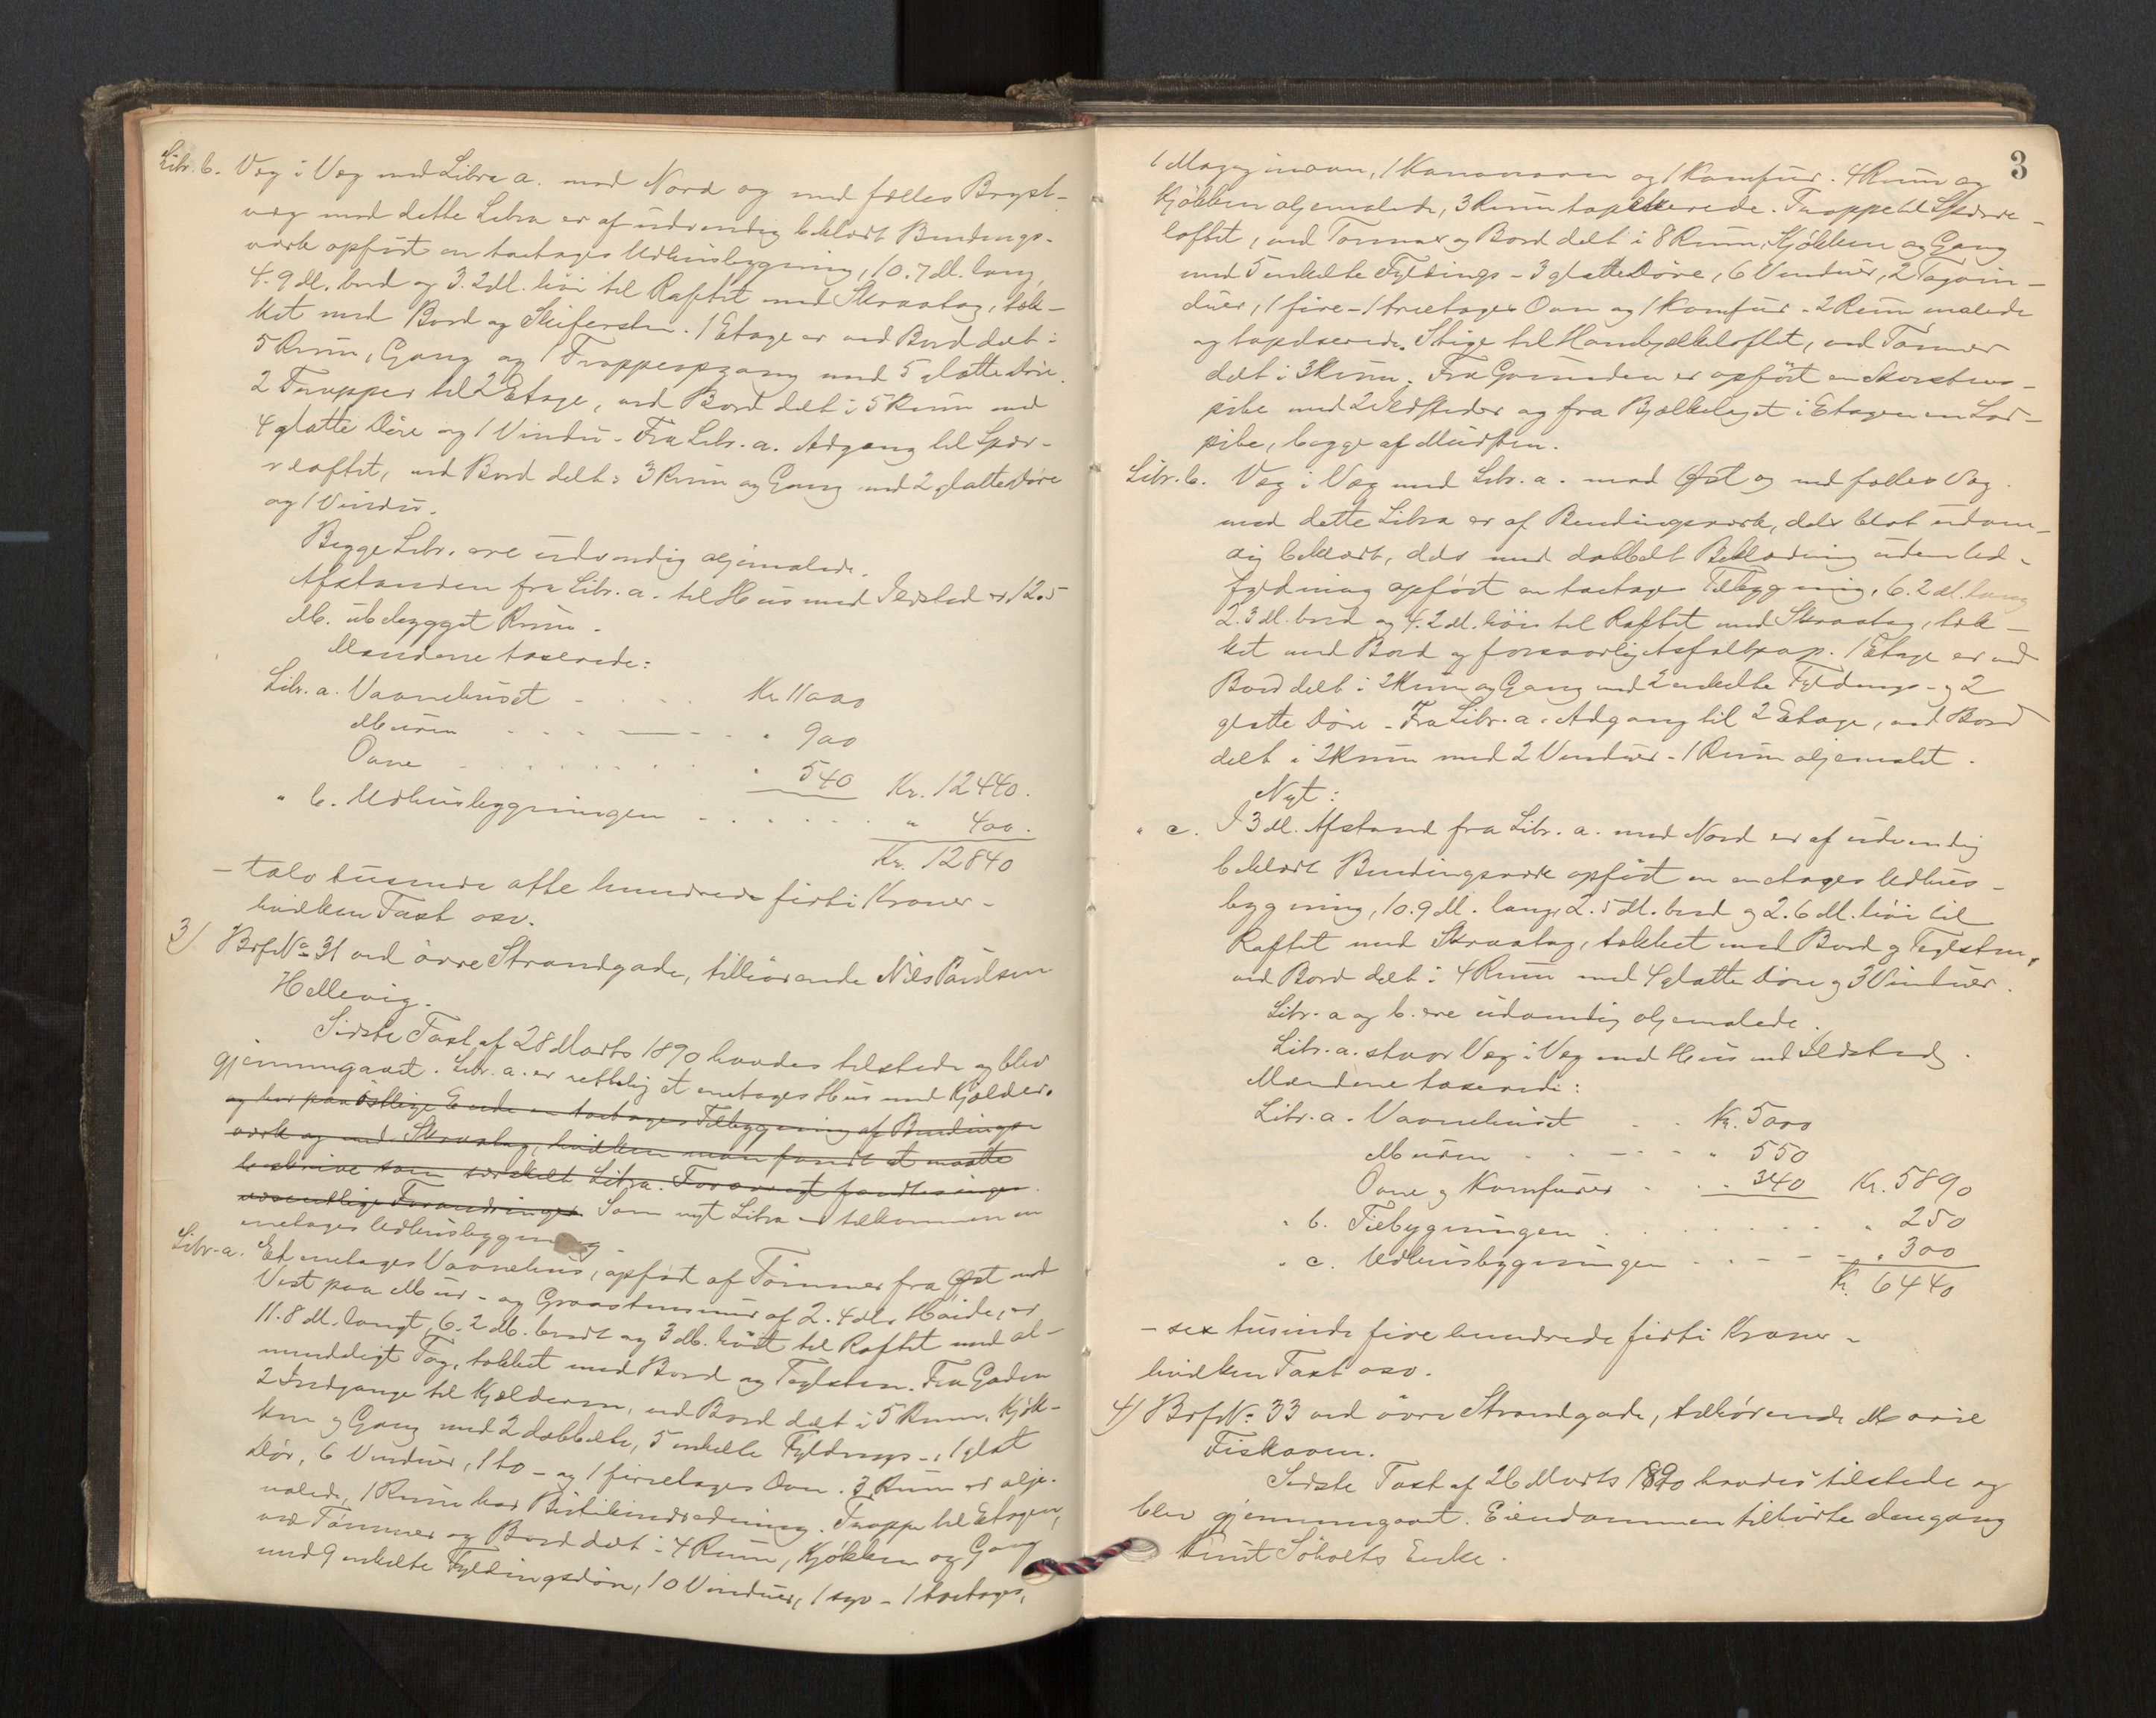 Litr. b. Væg i Væg med Litra a. mod Nord og med fælles Bryst-
væg mod dette Litra er af udvendig beklædt Bindings-
værk opført en toetages Udhusbygning, 10.7 M. lang,
4.9 M. bred og 3.2 M. høi til Raftet med Skraatag, tæk-
ket med Bord og Skifersten. 1 Etage er ved Bord delt i
5 Rum, Gang og 1 Trappeopgang med 5 glatte Døre.
2 Trapper til 2 Etage, ved Bord delt i 5 Rum med
4 glatte Døre og 1 Vindu. Fra Litr. a. Adgang til Spær-
reloftet, ved Bord delt i 3 Rum og Gang med 2 glatte Døre
og 1 Vindu.
Begge Litr. ere udvendig oljemalede.
Afstanden fra Litr. a. til Hus med Ildsted er 12.5
M. ubebygget Rum.
Mændene taxerede:
Litr. a. Vaanehuset Kr. 11000
Muren " 900
Ovne " 540 Kr. 12440.
" b. Udhusbygningen " 400.
Kr. 12840
- tolv tusende otte hundrede firti Kroner -
hvilken Taxt osv.
3) BrfNo 31 ved øvre Strandgade, tilhørende Nils Paulsen
Hellevig.
Sidste Taxt af 28 Marts 1890 havdes tilstede og blev
gjennemgaaet. Litr. a. er rettelig et enetages Hus med Kjælder.
og har paa østlige Ende en toetages Tilbygning af Bindings-
værk og med Skraatag, hvilken man fandt at maatte
beskrive som særskilt Litra. Forøvrigt fandtes ingen
væsentlige Forandringer. Som nyt Litra er tilkommen en
enetages Udhusbygning.
Litr. a. Et enetages Vaanehus, opført af Tømmer fra Øst mod
Vest paa Mur- og Graastensmur af 2.4 M. Høide, er
11.8 M. langt, 6.2 M. bredt og 3 M. høit til Raftet med al-
mindeligt Tag, tækket med Bord og Teglsten. Fra Gaden
2 Indgange til Kjælderen, ved Bord delt i 5 Rum, Kjøk-
ken og Gang med 2 dobbelte, 5 enkelte Fyldings-, 1 glat
Dør, 6 Vinduer, 1 to- og 1 fireetages Ovn. 3 Rum er olje-
malede, 1 Rum har Butikindredning. Trappe til Etagen,
ved Tømmer og Bord delt i 4 Rum, Kjøkken og Gang
med 9 enkelte Fyldingsdøre, 10 Vinduer, 1 syv- 1 toetages,
3
1 Magazinovn, 1 Kanonovn og 1 Komfur. 4 Rum og
Kjøkken oljemalede, 3 Rum tapetserede. Trappe til Spærre-
loftet, ved Tømmer og Bord delt i 8 Rum, Kjøkken og Gang
med 5 enkelte Fyldings- 3 glatte Døre, 6 Vinduer, 2 Tagvin-
duer, 1 fire- 1 treetages Ovn og 1 Komfur. 2 Rum malede
og tapetserede. Stige til Hanebjælkeloftet, ved Tømmer
delt i 3 Rum. Fra Grunden er opført en Skorstens-
pibe med 2 Ildsteder og fra Bjælkelaget i Etagen en Lod-
pibe, begge af Mursten.
Litr. b. Væg i Væg med Litr. a. mod Øst og med fælles Væg
mod dette Litra er af Bindingsværk, dels blot udven-
dig beklædt, dels med dobbelt Beklædning uden Ud-
fyldning opført en toetages Tilbygning, 6.2 M. lang
2.3 M. bred og 4.2 M. høi til Raftet med Skraatag, tæk-
ket med Bord og forsvarlig Asfaltpap. 1 Etage er ved
Bord delt i 2 Rum og Gang med 2 enkelte Fyldings- og 2
glatte Døre. Fra Litr. a. Adgang til 2 Etage, ved Bord
delt i 2 Rum med 2 Vinduer. 1 Rum oljemalet.
Nyt:
" c. I 3 M. Afstand fra Litr. a. mod Nord er af udvendig
beklædt Bindingsværk opført en enetages Udhus-
bygning, 10.9 M. lang, 2.5 M. bred og 2.6 M. høi til
Raftet med Skraatag, tækket med Bord og Teglsten,
ved Bord delt i 4 Rum med 4 glatte Døre og 3 Vinduer.
Litr. a og b. ere udvendig oljemalede.
Litr. a. staar Væg i Væg med Hus med Ildsted.
Mændene taxerede:
Litr. a. Vaanehuset Kr. 5000
Muren " 550
Ovne og Komfurer " 340 Kr. 5890
" b. Tilbygningen " 250
" c. Udhusbygningen " 300
Kr. 6440
- sex tusinde fire hundrede firti Kroner -
hvilken Taxt osv.
4) BrfNo 33 ved øvre Strandgade, tilhørende Marie
Fiskaaen.
Sidste Taxt af 26 Marts 1890 havdes tilstede og
blev gjennemgaaet. Eiendommen tilhørte dengang
Knut Soholts Enke.